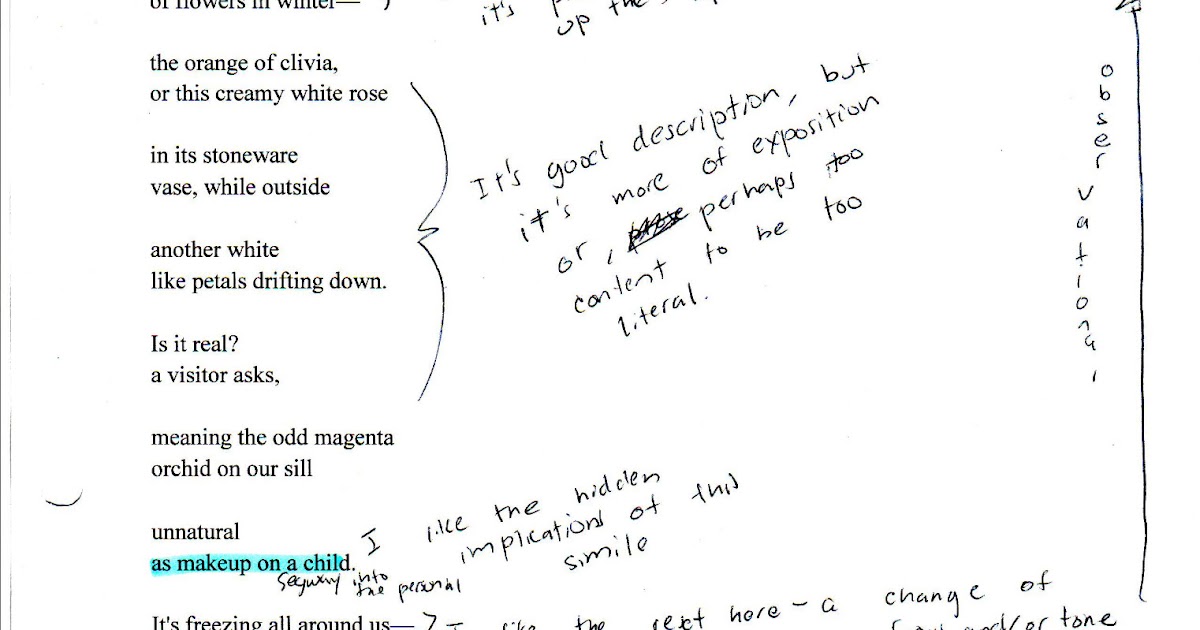 of flowers in winter—
it's
up the
the orange of clivia,
or this creamy white rose
in its stoneware
vase, while outside
another white
like petals drifting down.
Is it real?
a visitor asks,
It's good description, but
it's more of exposition
or, perhaps too
content to be too
literal.
observational
meaning the odd magenta
orchid on our sill
unnatural
as makeup on a child.
I like the hidden
implications of this
simile
segway into
the personal
It's freezing all around us—
I like the here - a change of
and/or tone